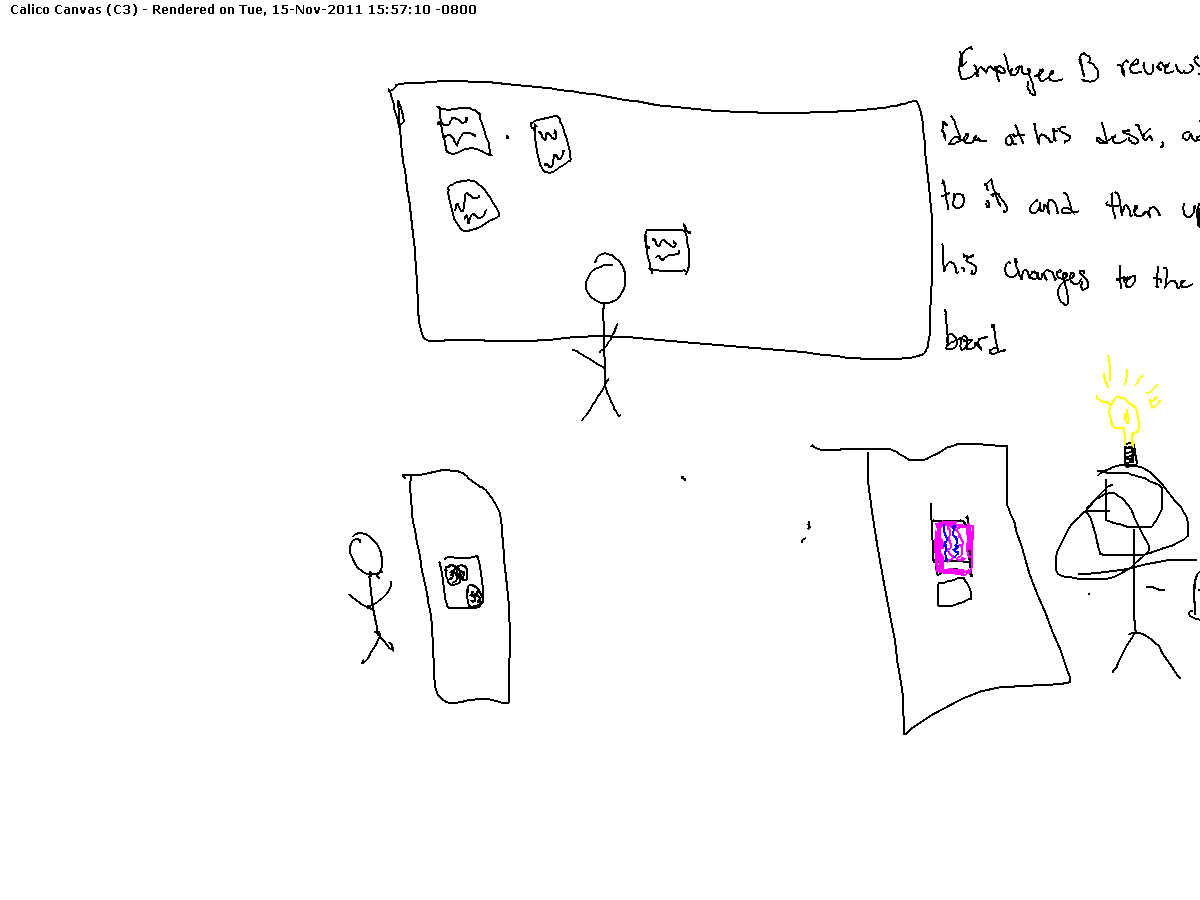 Calico Canvas (C3) - Rendered on Tue, 15-Nov-2011 15:57:10 -0800
Employee B reviews
idea at his desk, a
to it and then up
his changes to the
board